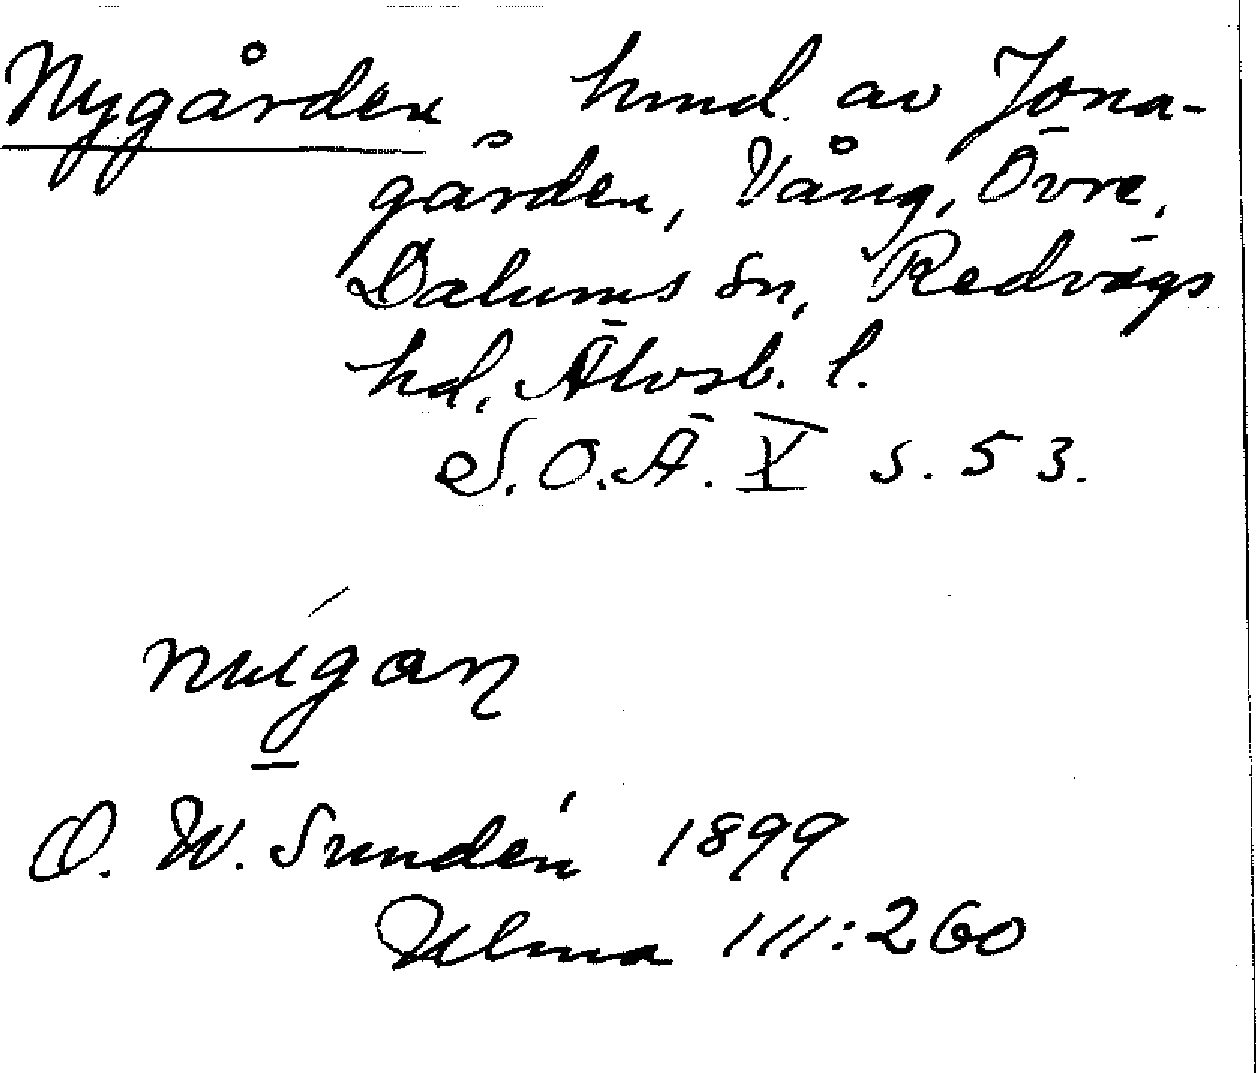 Nygården hmd. av Jona-
gården, Vång, Övre,
Dalums sn, Redvägs
hd. Älvsb. l.
S.O.Ä. X s. 53.
O. W. Sundén 1899
Ulma 111:260